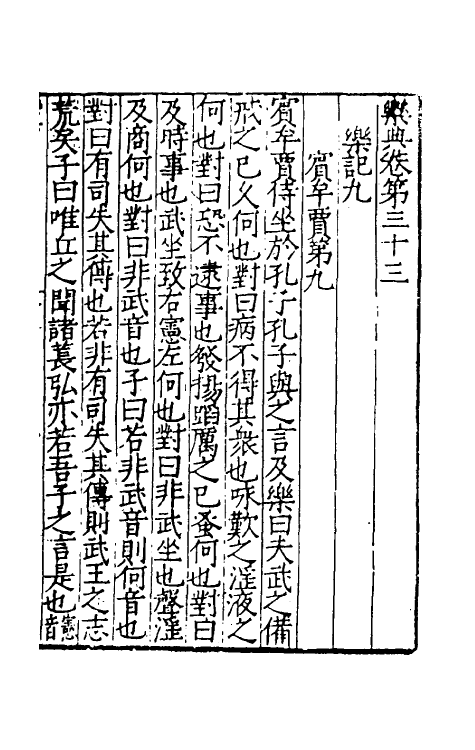 樂典卷第三十三
樂記九
賓牟賈第九
賓牟賈侍坐於孔子孔子與之言及樂曰夫武之備
戒之已久何也對曰病不得其衆也咏歎之滛液之
何也對曰恐不逮事也發揚蹈厲之已蚤何也對曰
及時事也武坐致右憲左何也對曰非武坐也聲滛
及商何也對曰非武音也子曰若非武音則何音也
對曰有司失其傳也若非有司失其傳則武王之志
荒矣子曰唯丘之聞諸萇弘亦若吾子之言是也憲音